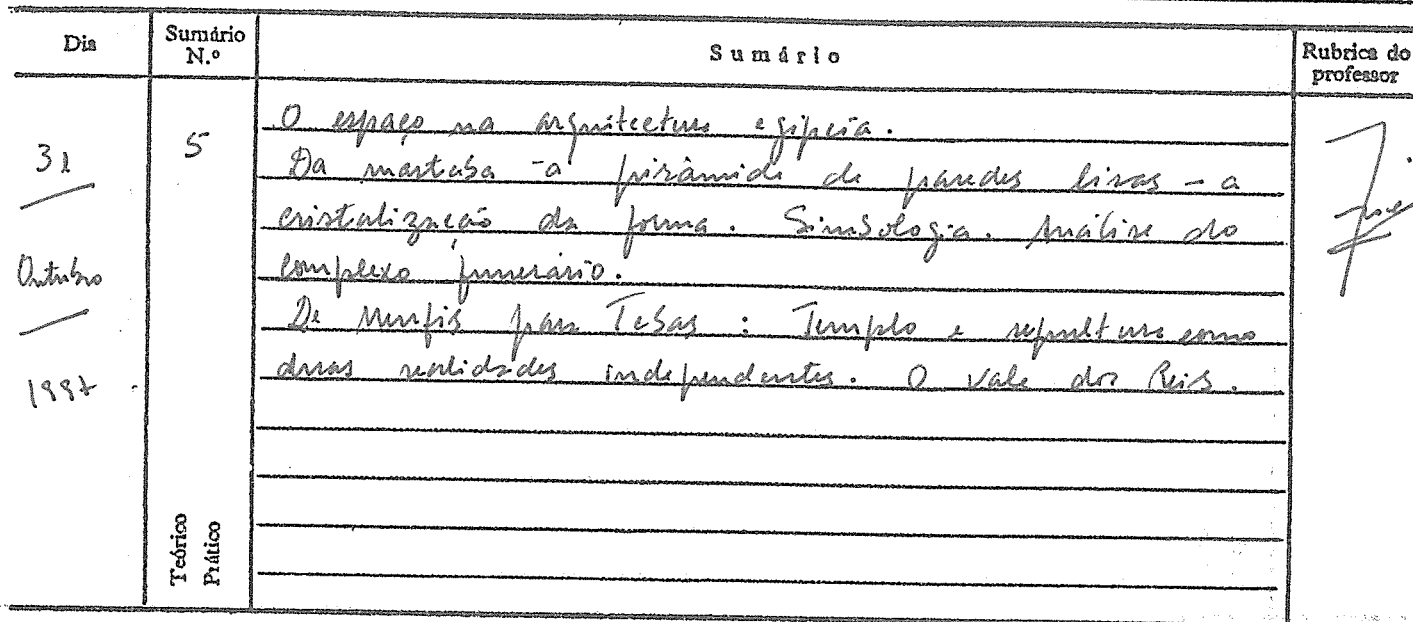 Dia
Sumário N.º
Sumário
Rubrica do professor
31
Outubro
1997
5
O espaço na arquitectura egípcia.
Da mastaba à pirâmide de paredes lisas - a
cristalização da forma. Simbologia. Análise do
complexo funerário.
De Menfis para Tebas : Templo e sepultura como
duas realidades independentes. O Vale dos Reis.
Teórico
Prático